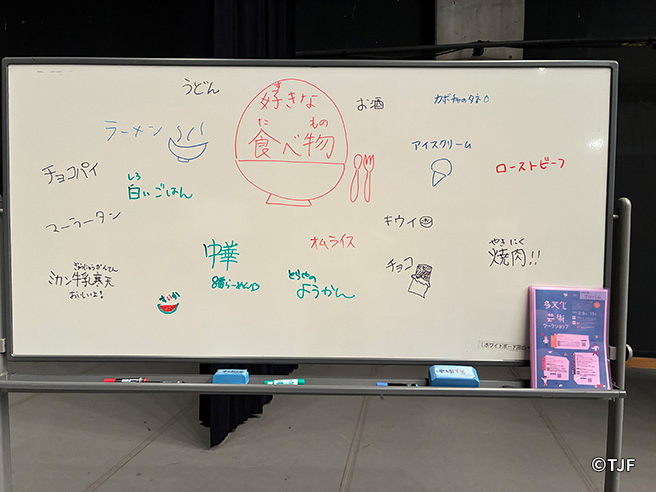 うどん
好きな
た もの
食べ物
お酒
カボチャのタネ
ラーメン
アイスクリーム
チョコパイ
しろ
白いごはん
ローストビーフ
マーラータン
キウイ
オムライス
中華
8番らーめん
チョコ
やき にく
焼肉!!
ぎゅうにゅうかんてん
ミカン牛乳寒天
おいしいよ!
すいか
とらやの
ようかん
多文化
芸術
ワークショップ
©TJF